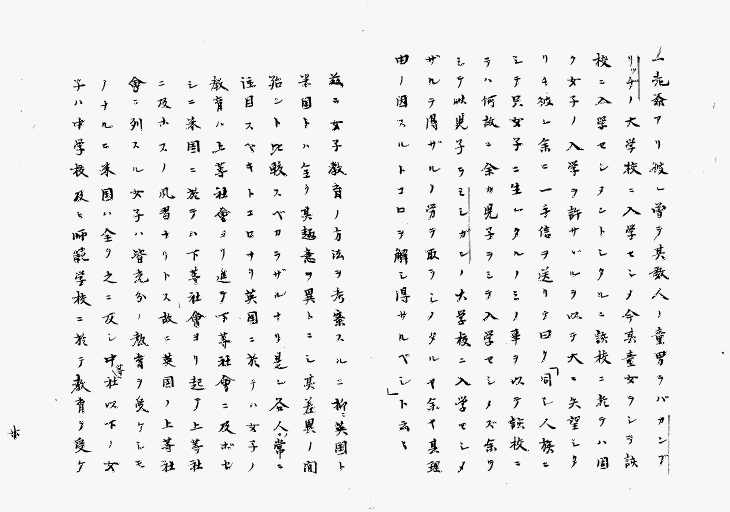 ム売爺アリ彼レ曽テ其数人ノ童男ヲバカンブ
リッヂノ大学校ニ入学セシメ今其童女ヲシテ該
校ニ入学セシメントシタルニ該校ニ於テハ固
ク女子ノ入学ヲ許サヾルヲ以テ大ニ失望シタ
リキ彼レ余ニ一手信ヲ送リテ曰ク「同シ人族ニ
シテ只女子ニ生レタルノミノ事ヲ以テ該校ニ
テハ何故ニ余カ児子ヲシテ入学セシメズ余ヲ
シテ此児子ヲミシガンノ大学校ニ入学セシメ
ザルヲ得ザルノ労ヲ取ラシメタルヤ余ヤ其理
由ノ因スルトコロヲ解シ得サルベシ」ト云々
茲ニ女子教育ノ方法ヲ考案スルニ抑ニ英国ト
米国トハ全ク其趣意ヲ異トニシ其差異ノ間
殆ント比較スベカラザルナリ是レ各人ノ常ニ
注目スベキトコロナリ英国ニ於テハ女子ノ
教育ハ上等社會ヨリ進テ下等社會ニ及ボセ
シニ米国ニ於テハ下等社會ヨリ起テ上等社
ニ及ホスノ風習ナリトス故ニ英国ノ上等社
會ニ列スル女子ハ皆充分ノ教育ヲ受ケシモ
ノナルモ米国ハ全ク之ニ反シ中等社以下ノ女
子ハ中学校及ヒ師範学校ニ於テ教育ヲ受ケ